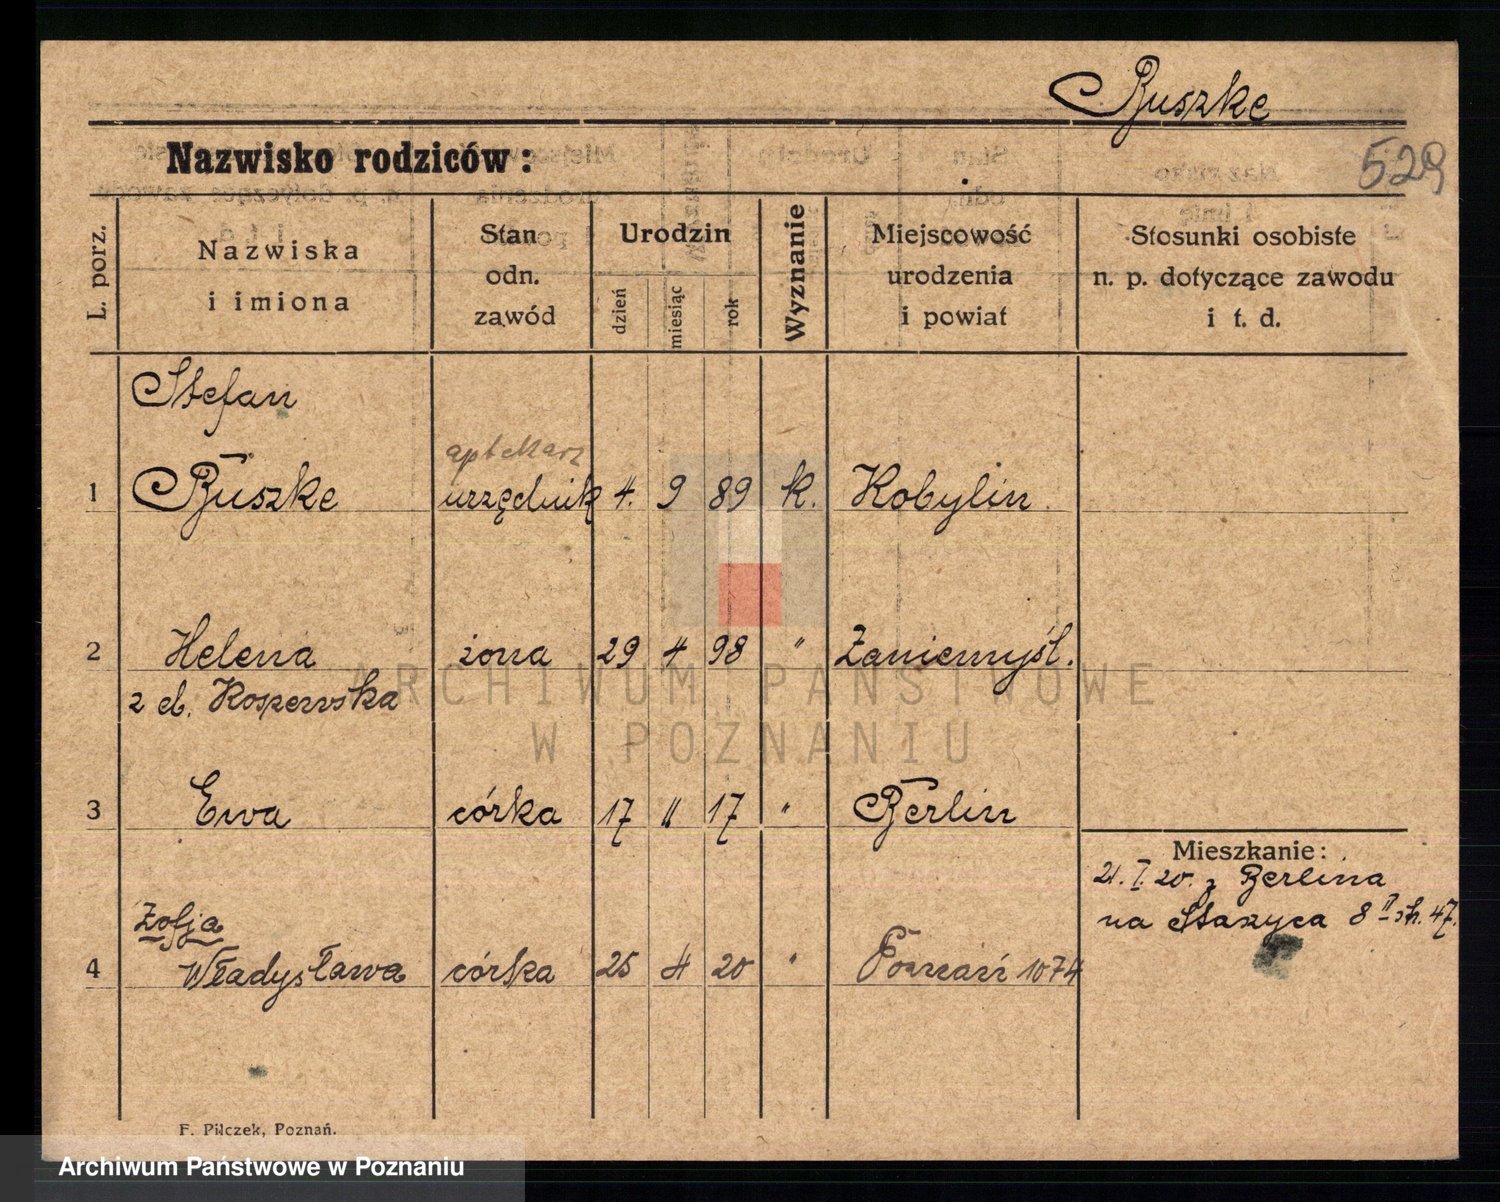 Buszke
Nazwisko rodziców:
529
L. porz.
Nazwiska
i imiona
Stan
odn.
zawód
Urodzin
dzień
miesiąc
rok
Wyznanie
Miejscowość
urodzenia
i powiat
Stosunki osobiste
n. p. dotyczące zawodu
i t. d.
Stefan
aptekarz
1 Buszke urzędnik 4. 9 89 k. Kobylin
2 Helena żona 29 4 98 " Zaniemyśl.
z d.
3 Ewa córka 17 11 17 " Berlin
Mieszkanie:
21. I. 20. z Berlina
na Staszyca 8 II 47.
Zofja
4 Władysława córka 25 4 20 " Poznań 1074
F. Pilczek, Poznań.
ARCHIWUM PAŃSTWOWE
W POZNANIU
Archiwum Państwowe w Poznaniu